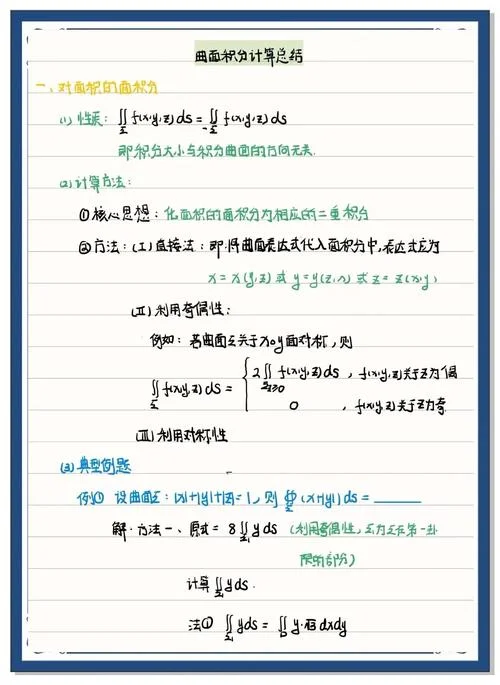 曲面积分计算总结
一、对面积的面积分
(1) 性质: ∬_Σ f(x,y,z) ds = ∬_{-Σ} f(x,y,z) ds
即积分大小与积分曲面的方向无关.
(2) 计算方法:
① 核心思想: 化面积的面积分为相应的二重积分
② 方法: (I) 直接法: 即将曲面表达式代入面积分中, 表达式应为
x = x(y,z) 或 y = y(z,x) 或 z = z(x,y)
(II) 利用奇偶性:
例如: 若曲面Σ关于xoy面对称, 则
∬_Σ f(x,y,z) ds = { 2∬_{Σz≥0} f(x,y,z) ds , f(x,y,z)关于z为偶
0 , f(x,y,z)关于z为奇
(III) 利用对称性
(3) 典型例题
例① 设曲面Σ: |x|+|y|+|z|=1, 则 ∯_Σ (x+|y|) ds = ______
解: 方法一、原式 = 8∬_{Σ₁} y ds (利用奇偶性, Σ₁为Σ在第一卦
限的部分)
计算 ∬_{Σ₁} y ds.
法① ∬_{Σ₁} y ds = ∬_D y·√3 dxdy